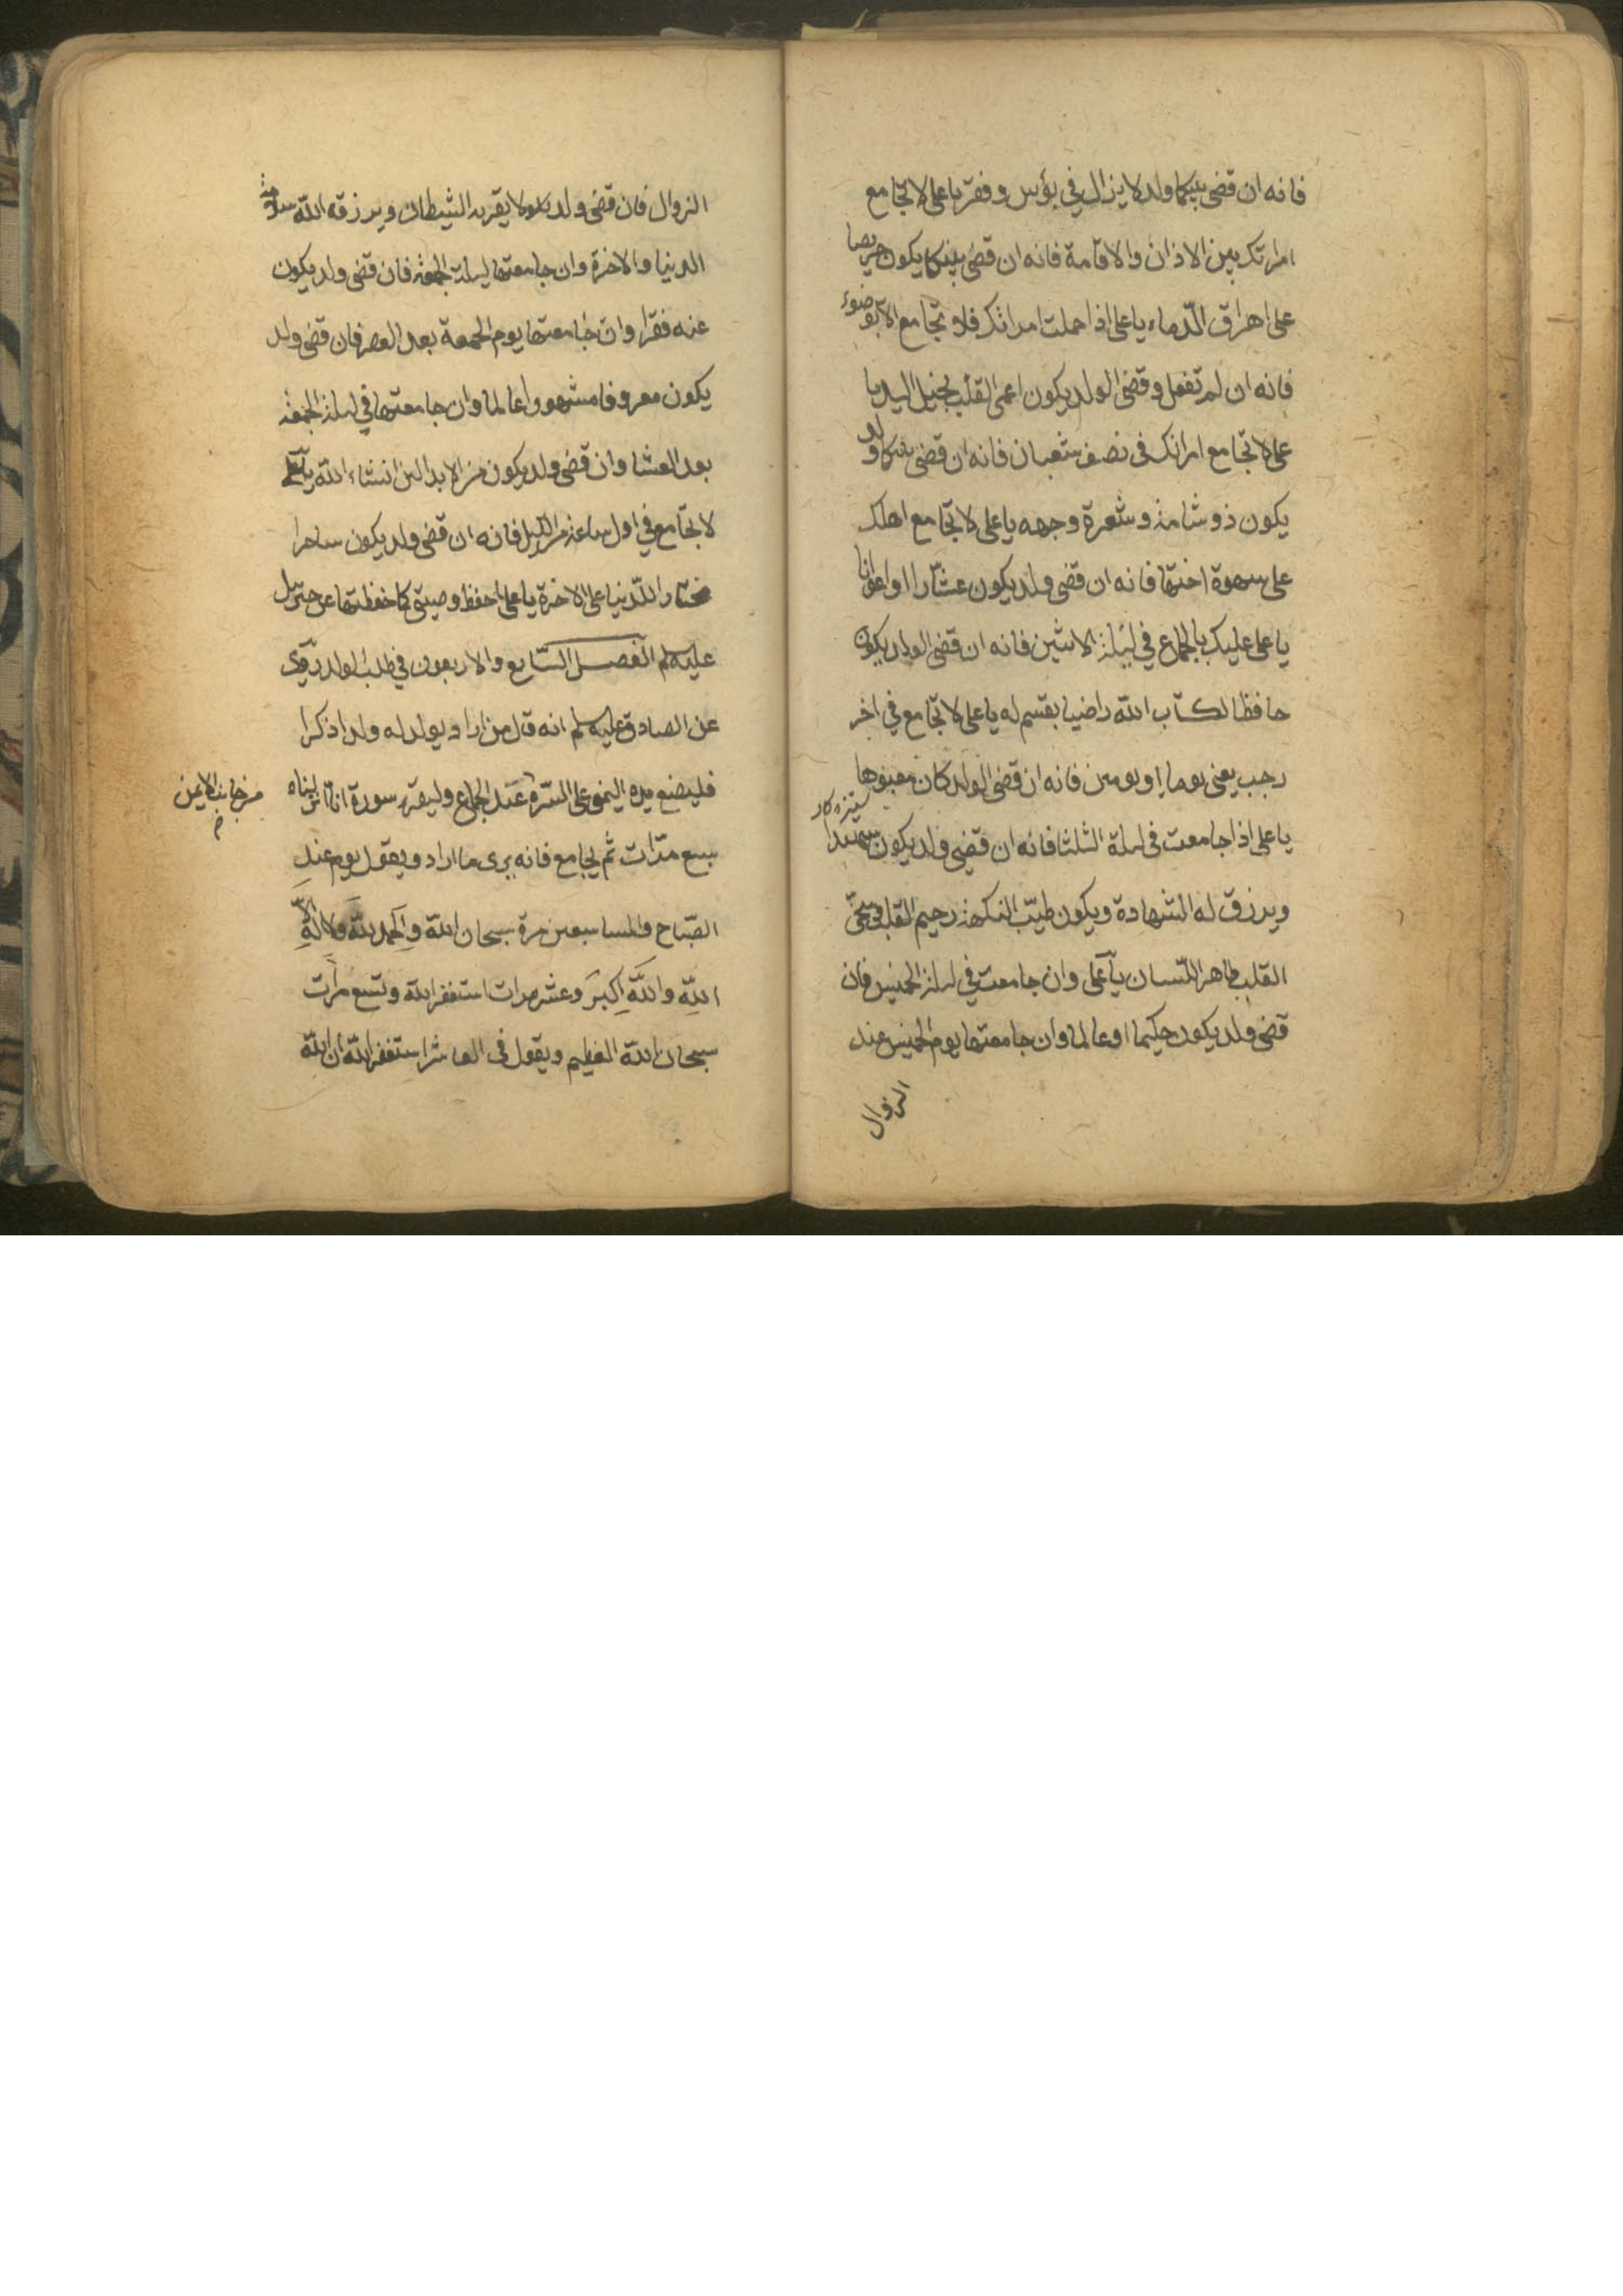 فانه ان قضى بينكما ولد لا يزال في بؤس وفقر يا على لا تجامع
امراتك بين الاذان والاقامة فانه ان قضى بينكما يكون حريصا
على اهراق الدّماء يا على اذا حملت امراتك فلا تجامع الا بوضوء
فانه ان لم تفعل وقضى الولد يكون اعمى القلب بخيل اليد يا
على لا تجامع امراتك فى نصف شعبان فانه ان قضى بينكما ولد
يكون ذو شامة وشعرة وجهه يا على لا تجامع اهلك
على سهوة اختها فانه ان قضى ولد يكون عشّارا او اعوانا
يا على عليك بالجماع في ليلة الاثنين فانه ان قضى الولد يكون
حافظا لكتاب الله راضيا بقسم له يا على لا تجامع في اخر
رجب يعنى يوما او يومين فانه ان قضى الولد كان معبوها
ستزه كار
يا على اذا جامعت فى ليلة الثلثا فانه ان قضى ولد يكون
ويرزق له الشهادة ويكون طيّب النكهة رحيم القلب سخىّ
القلب طاهر اللّسان يا على وان جامعت في ليلة الخميس فان
قضى ولد يكون حكيما او عالما وان جامعتها يوم الخميس عند
الزوال
الزوال فان قضى ولد لا يقربه الشيطان ويرزقه الله سلامة
الدنيا والاخرة وان جامعتها ليلة الجمعة فان قضى ولد يكون
عنه فقرا وان جامعتها يوم الجمعة بعد العصر فان قضى ولد
يكون معروفا مشهورا عالما وان جامعتها في ليلة الجمعة
بعد العشا وان قضى ولد يكون من الابدالين انشاء الله يا على
لا تجامع في اول ساعة من الليل فانه ان قضى ولد يكون ساحرا
مختار الدّنيا على الاخرة يا على احفظ وصيتى كما حفظتها عن جبرئيل
عليه لم الفصل السّابع والاربعون في طلب الولد روى
عن الصادق عليه لم انه قال من اراد يولد له ولدا ذكرا
فليضع يده اليمنى على السّرة عند الجماع وليقرء سورة انا انزلناه
من جانب الايمن
سبع مرّات ثم يجامع فانه يرى ما اراد ويقول يوم عند
الصّباح والمسا سبعين مرة سبحان الله والحمد لله ولا اله الا
الله والله اكبر وعشر مرات استغفر الله وتسع مرات
سبحان الله العظيم ويقول فى العاشر استغفر الله ان الله